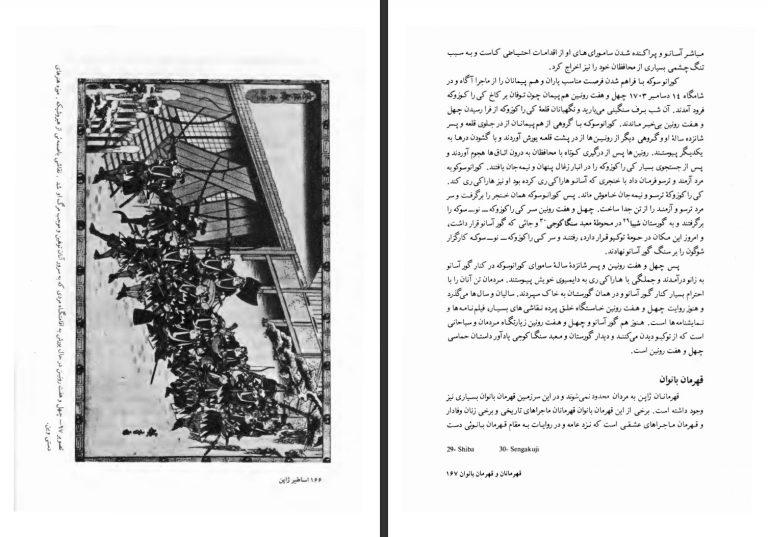 تصویر ۹۷ــ چهل و هفت رونین در حال یورش به اقامتگاه مردی که به سرور آنان توهین و موجب مرگ او شد. نقاشی باسمه‌ئی از هیروشیگه، موزه هنرهای
دستی وین.
۱۶۶ اساطیر ژاپن
مباشر آسانو و پراکنده شدن سامورای‌های او از اقدامات احتیاطی کاست و به سبب
تنگ‌چشمی بسیاری از محافظان خود را نیز اخراج کرد.
کورانوسوکه با فراهم شدن فرصت مناسب یاران و هم‌پیمانان را از ماجرا آگاه و در
شامگاه ۱٤ دسامبر ۱۷۰۳ چهل و هفت رونین هم‌پیمان چون توفان بر کاخ کی راکوزوکه
فرود آمدند. آن شب برف سنگینی می‌بارید و نگهبانان قلعهٔ کی راکوزوکه از فرا رسیدن چهل
و هفت رونین بی‌خبر ماندند. کورانوسوکه با گروهی از هم‌پیمانان از در جلوی قلعه و پسر
شانزده سالهٔ او و گروهی دیگر از رونین‌ها از در پشت قلعه یورش آوردند و با گشودن درها به
یکدیگر پیوستند. رونین‌ها پس از درگیری کوتاه با محافظان به درون اتاق‌ها هجوم آوردند و
پس از جستجوی بسیار کی راکوزوکه را در انبار زغال پنهان و نیمه‌جان یافتند. کورانوسوکو به
مرد آزمند و ترسو فرمان داد با خنجری که آسانو هاراکی‌ری کرده بود او نیز هاراکی‌ری کند.
کی راکوزوکهٔ ترسو و نیمه‌جان خاموش ماند. پس کورانوسوکه همان خنجر را برگرفت و سر
مرد ترسو و آزمند را از تن جدا ساخت. چهل و هفت رونین سر کی راکوزوکه ــ نو ــ سوکه را
برگرفتند و به گورستان شیبا۲۹ در محوطهٔ معبد سنگاکوجی۳۰ و جائی که گور آسانو قرار داشت،
و امروز این مکان در حومهٔ توکیو قرار دارد، رفتند و سر کی راکوزوکه ــ نو ــ سوکه کارگزار
شوگون را بر سنگ گور آسانو نهادند.
پس چهل و هفت رونین و پسر شانزدهٔ سالهٔ سامورای کورانوسوکه در کنار گور آسانو
به زانو درآمدند و جملگی با هاراکی‌ری به دایمیوی خویش پیوستند. مردمان تن آنان را با
احترام بسیار کنار گور آسانو و در همان گورستان به خاک سپردند. سالیان و سال‌ها می‌گذرد
و هنوز روایت چهل و هفت رونین خاستگاه خلق پرده نقاشی‌های بسیار، فیلم‌نامه‌ها و
نمایشنامه‌ها است. هنوز هم گور آسانو و چهل و هفت رونین زیارتگاه مردمان و سیاحانی
است که از توکیو دیدن می‌کنند و دیدار گورستان و معبد سنگاکوجی یادآور داستان حماسی
چهل و هفت رونین است.
قهرمان بانوان
قهرمانان ژاپن به مردان محدود نمی‌شوند و در این سرزمین قهرمان بانوان بسیاری نیز
وجود داشته است. برخی از این قهرمان بانوان قهرمانان ماجراهای تاریخی و برخی زنان وفادار
و قهرمان ماجراهای عشقی است که نزد عامه و در روایات به مقام قهرمان بانوئی دست
29- Shiba 30- Sengakuji
قهرمانان و قهرمان بانوان ۱۶۷